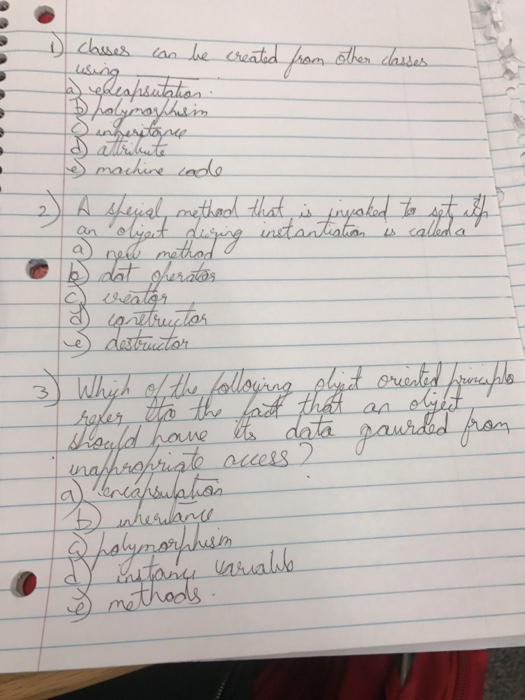 1) classes can be created from other classes
using
a) encapsulation.
b) polymorphism
c) inheritance
d) attribute
e) machine code
2) A special method that is invoked to set up
an object during instantiation is called a
a) new method
b) dot operator
c) creator
d) constructor
e) destructor
3) Which of the following object oriented principle
refer to the fact that an object
should have its data gaurded from
inappropriate access?
a) encapsulation
b) inheritance
c) polymorphism
d) instance variable
e) methods.